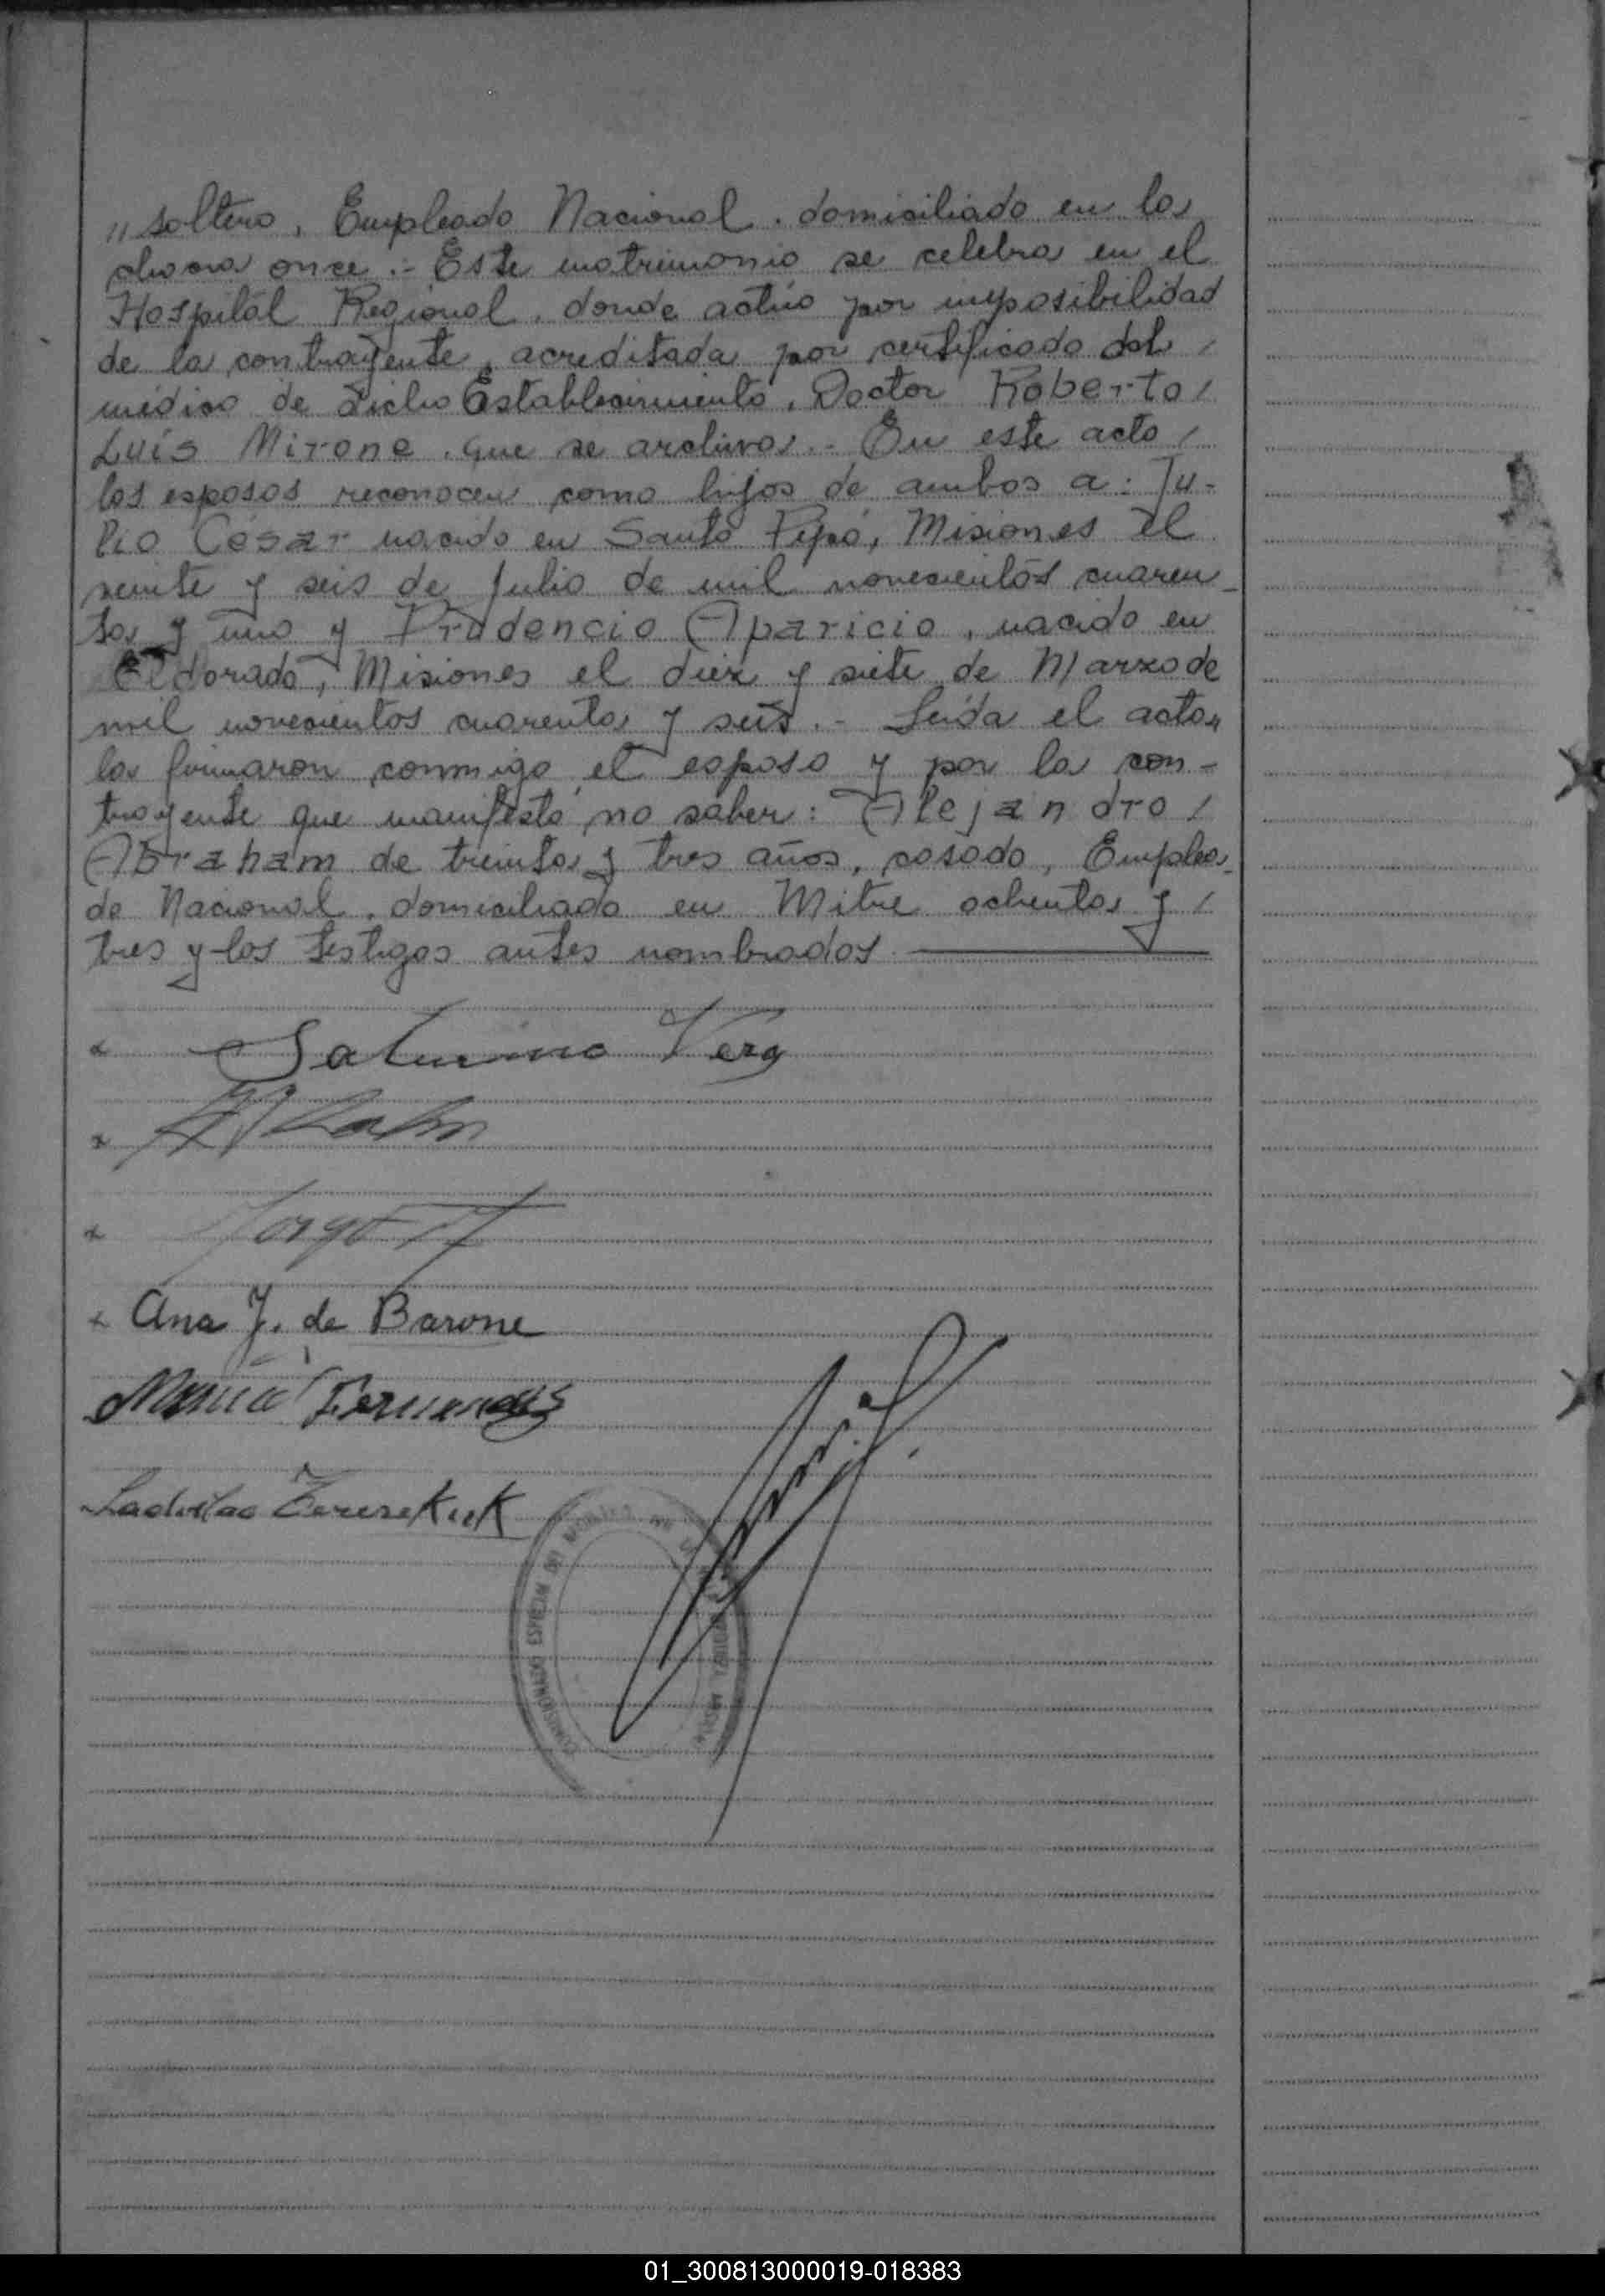 " soltero, Empleado Nacional, domiciliado en la
chacra once.- Este matrimonio se celebra en el
Hospital Regional, donde actúo por imposibilidad
de la contrayente, acreditada por certificado del /
médico de dicho Establecimiento, Doctor Roberto /
Luís Mirone, que se archiva.- En este acto /
los esposos reconocen como hijos de ambos a: Ju-
lio César nacido en Santo Pipó, Misiones el
veinte y seis de Julio de mil novecientos cuaren-
ta y uno y Prudencio Aparicio, nacido en
Eldorado, Misiones el diez y siete de Marzo de
mil novecientos cuarenta y seis.- Leída el acta,
la firmaron conmigo, el esposo y por la con-
trayente que manifestó no saber: Alejandro /
Abraham de treinta y tres años, casado, Emplea-
do Nacional, domiciliado en Mitre ochenta y /
tres y los testigos antes nombrados
x Saturnino Vera
x
x Jorge
x Ana J. de Barone
María Fernandez
Ladislao
COMISIONADO ESPECIAL
01_300813000019-018383